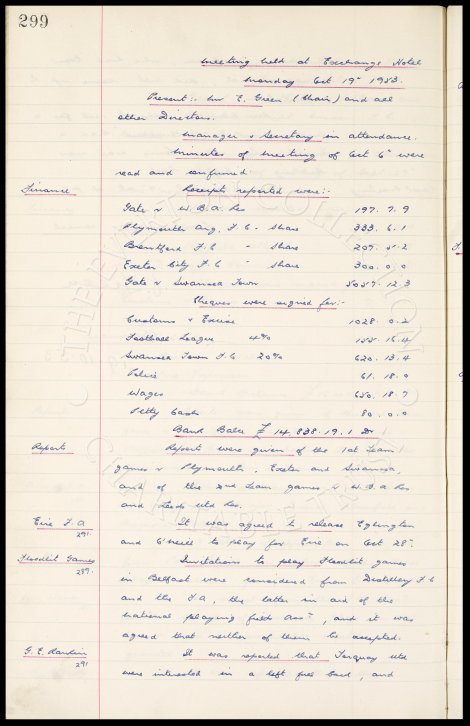 299
Meeting held at Exchange Hotel
Monday Oct 19th 1953.
Present:- Mr E. Green (Chair) and all
other Directors.
Manager & Secretary in attendance.
Minutes of meeting of Oct 6th were
read and confirmed
Finance
Receipts reported were:-
Gate v W.B.A. Res 197. 7. 9
Plymouth Arg. F.C - Share 333. 6. 1
Brentford F.C - Share 207. 5. 2
Exeter City F.C - Share 300. 0. 0
Gate v Swansea Town 5057. 12. 3
Cheques were signed for:-
Customs & Excise 1028. 0. 2
Football League 4% 155. 16. 4
Swansea Town F.C 20% 620. 13. 4
Police 61. 18. 0
Wages 650. 18. 7
Petty Cash 80. 0. 0
Bank Balce £ 14,838. 19. 1 Dr
Reports
Reports were given of the 1st Team
games v Plymouth, Exeter and Swansea,
and of the 2nd Team games v W.B.A Res
and Leeds Utd Res.
Eire F.A
291.
It was agreed to release Eglington
and O'Neill to play for Eire on Oct 28th.
Floodlit Games
289.
Invitations to play Floodlit games
in Belfast were considered from Distillery F.C
and the F.A, the latter in aid of the
National playing fields Assn, and it was
agreed that neither of them be accepted.
G. E. Rankin
291
It was reported that Torquay Utd
were interested in a left full back, and
THE EVERTON COLLECTION
CHARITABLE TRUST